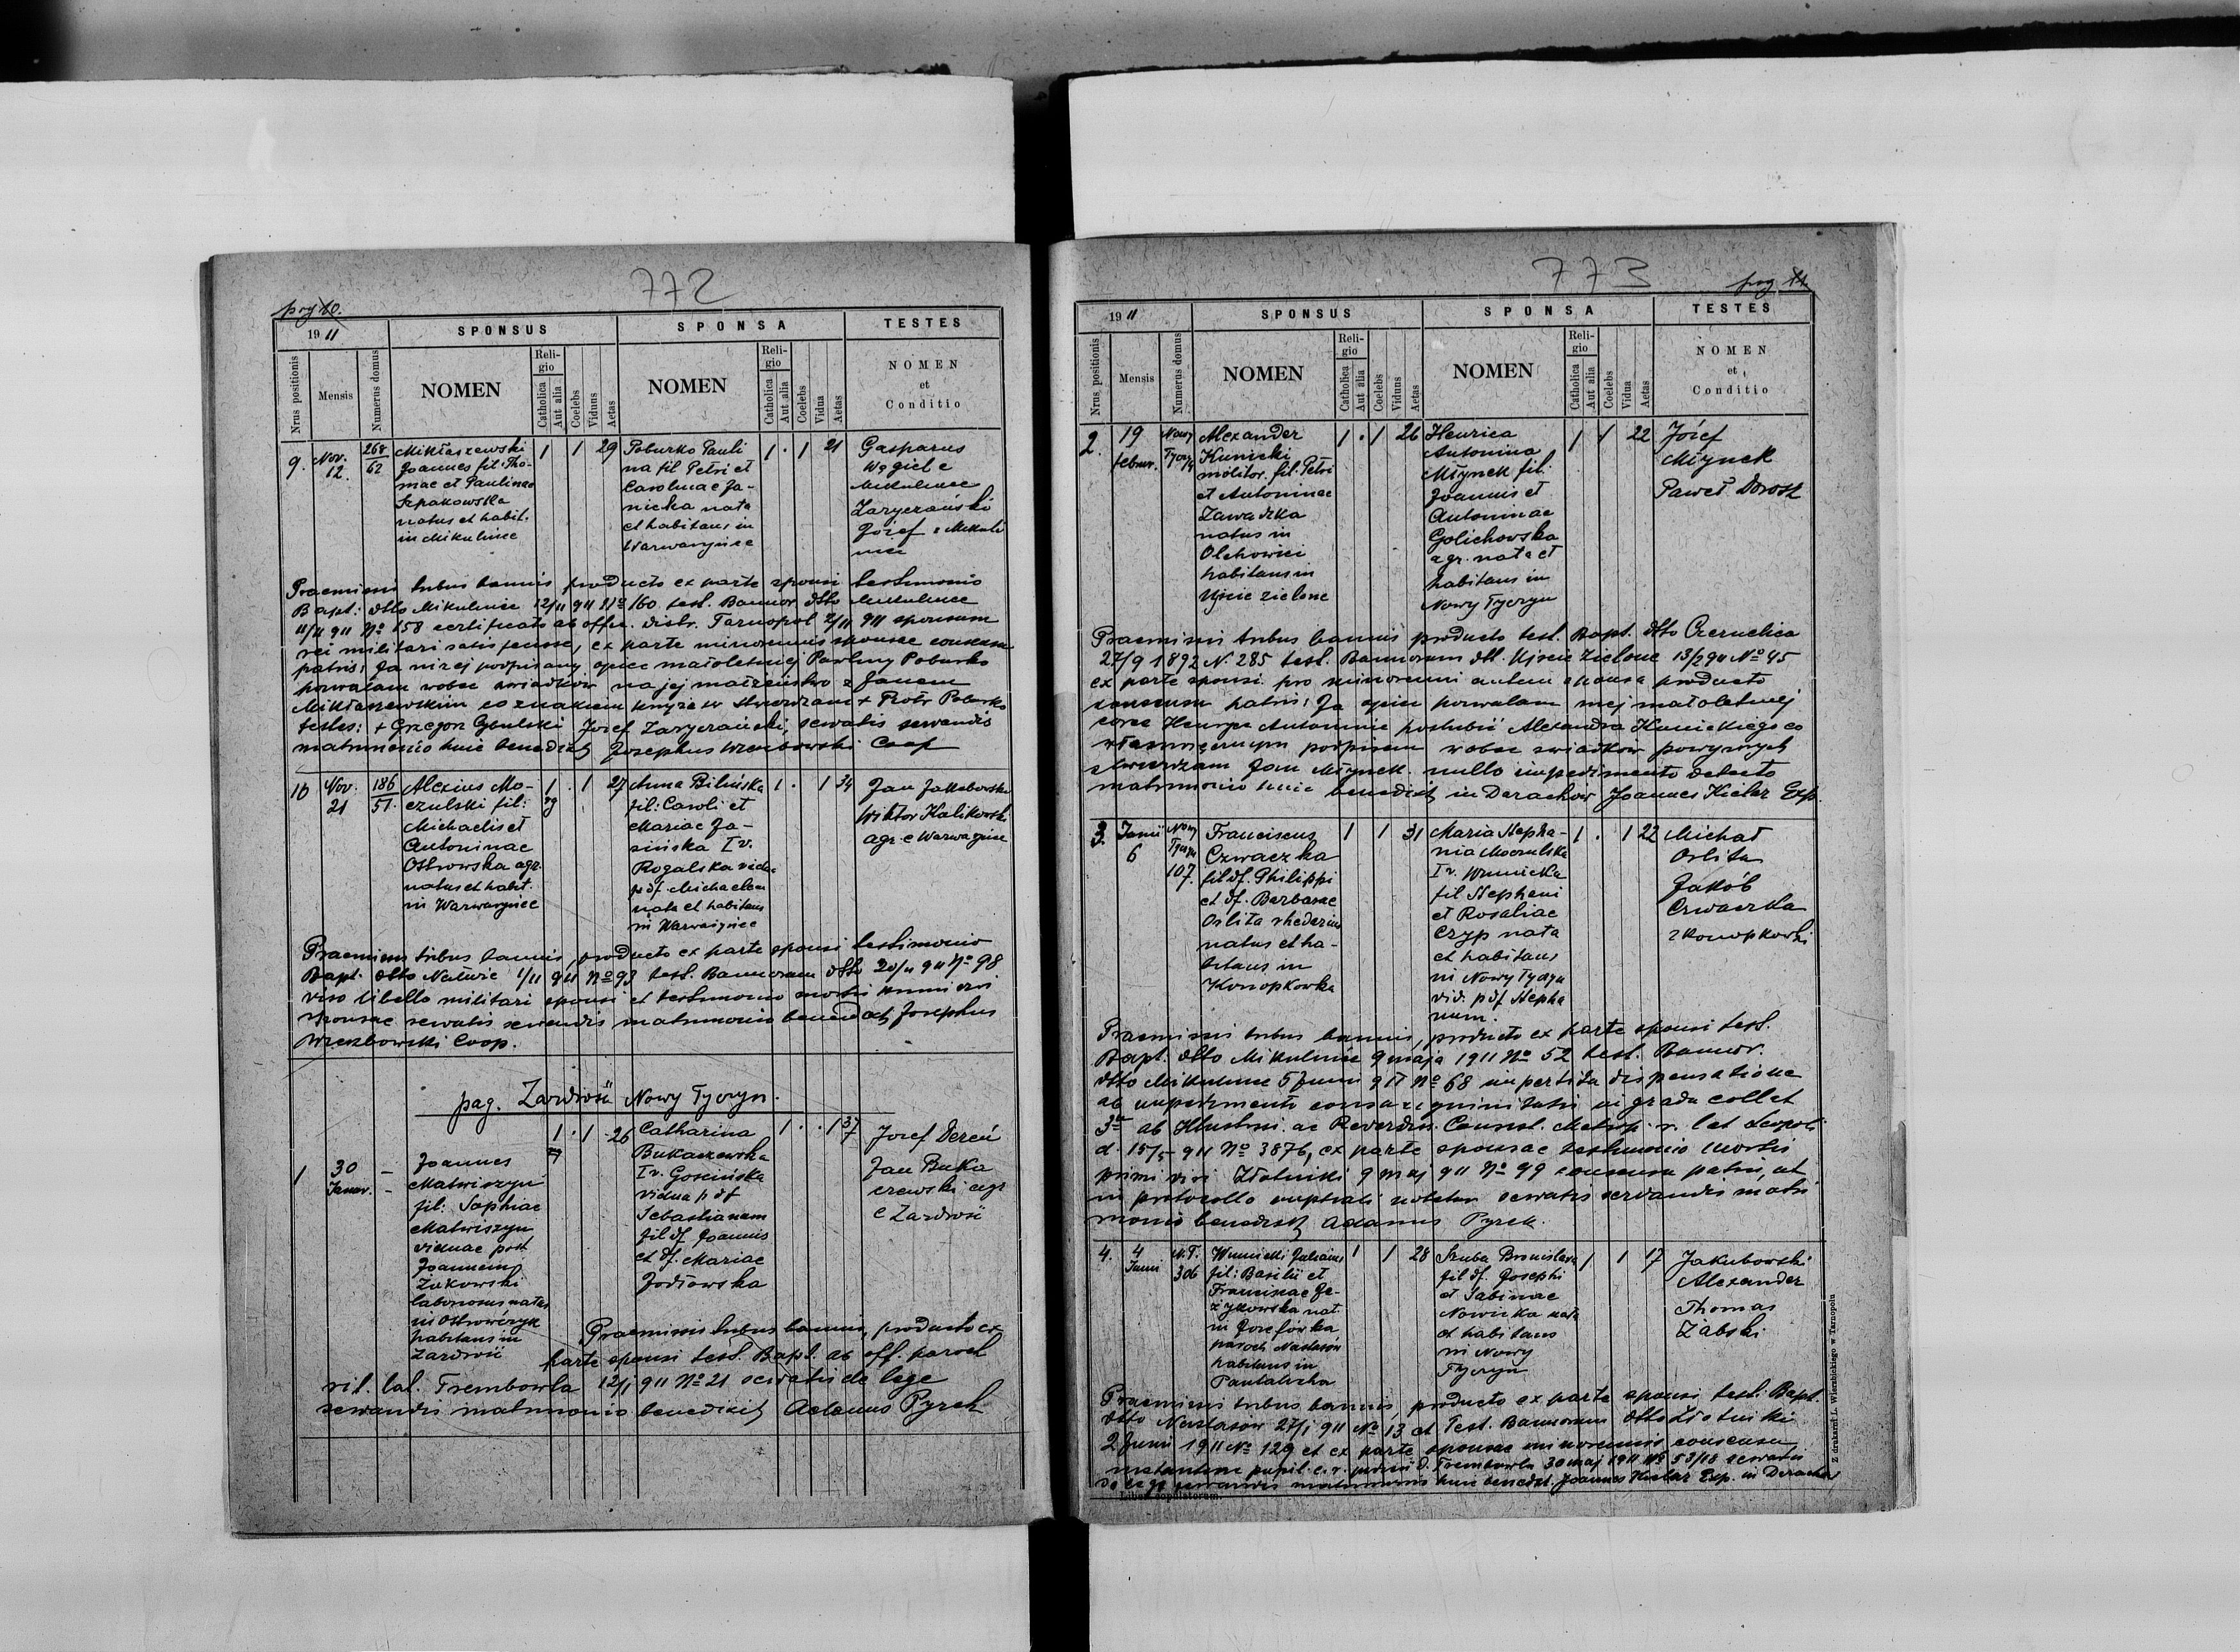 772
pag 10.
1911
SPONSUS
SPONSA
TESTES
Nrus positionis
Mensis
Numerus domus
NOMEN
Religio
Catholica
Aut alia
Coelebs
Viduus
Aetas
NOMEN
Religio
Catholica
Aut alia
Coelebs
Vidua
Aetas
NOMEN
et
Conditio
9. Nov. 12. 268/62
Mikłaszewski
Joannes fil. Tho-
mae et Paulinae
Szpakowska
natus et habit.
in Mikulince
1 1 29
Poburko Pauli
na fil Petri et
Carolinae Ja-
nicka nata
et habitans in
Warwaryńce
1 . 1 21
Gasparus
Węgiel e
Mikulince
Zaryczański
Józef e Mikuli
nce
Praemissis tribus bannis producto ex parte sponsi testimonio
Bapt. dtto Mikulince 12/11 911 No 160 test. Bannor. dtto Mikulince
11/11 911 No 158 certificato ab offic. distr. Tarnopol 2/11 911 sponsum
rei militari satis fecisse, ex parte minorennis sponsae consensu
patris: Ja niżej podpisany ojciec małoletniej Pauliny Poburko
pozwalam wobec świadków na jej małżeństwo z Janem
Mikłaszewskim co znakiem krzyża św stwierdzam + Piotr Poburko
testes: + Grzegorz Cybulski Józef Zaryczański, servatis servandis
matrimonio huic benedixit Josephus Wrzesbowski Coop
10 Nov. 21 186/51.
Alexius Mo-
czulski fil:
Michaelis et
Antoninae
Ostrowska agr.
natus et habit.
in Warwaryńce
1 . 1 27
Anna Bilińska
fil: Caroli et
Mariae Ja-
sińska I v.
Rogalska vidua
p. df. Michaelem
nata et habitans
in Warwaryńce
1 . 1 34
Jan Jakubowski
Wiktor Kalikowski
agr. e Warwaryńce
Praemissis tribus bannis, producto ex parte sponsi testimonio
Bapt. dtto Nałuże 1/11 911 No 93 test. Bannorum dtto 20/11 911 No 98
viso libello militari sponsi et testimonio mortis primi viri
sponsae servatis servandis matrimonio benedixit Josephus
Wrzesbowski Coop.
pag. Zazdrość Nowy Tyczyn.
1 30 Januar. -
Joannes
Matwiszyn
fil: Sophiae
Matwiszyn
viduae post
Joannem
Żukowski
laboriosus natus
in Ostrowczyk
habitans in
Zazdrość
1 . 1 26
Catharina
Bukaczewska
I v. Goscińska
vidua p df
Sebastianum
fil df. Joannis
et df. Mariae
Jodłowska
1 . . 1 37
Jozef Dereń
Jan Buka
czewski agr
e Zazdrość
Praemissis tribus bannis, producto ex
parte sponsi test. Bapt. ab off. paroch
rit. lat. Trembowla 12/1 911 No 21 servatis de lege
servandis matrimonio benedixit Adamus Pyrek
773
pag 11.
1911
SPONSUS
SPONSA
TESTES
Nrus positionis
Mensis
Numerus domus
NOMEN
Religio
Catholica
Aut alia
Coelebs
Viduus
Aetas
NOMEN
Religio
Catholica
Aut alia
Coelebs
Vidua
Aetas
NOMEN
et
Conditio
2. 19 februar. Nowy Tyczyn
Alexander
Kunicki
molitor, fil. Petri
et Antoninae
Zawadzka
natus in
Olchowiec
habitans in
Ujście zielone
1 . 1 26
Henrica
Antonina
Młynek fil.
Joannis et
Antoninae
Golichowska
agr. nata et
habitans in
Nowy Tyczyn
1 1 22
Józef
Młynek
Paweł Dorosz
Praemissis tribus bannis producto test. Bapt. dtto Czernelica
27/9 1892 N. 285 test. Bannorum dtt. Ujście zielone 13/2 911 No 45
ex parte sponsi pro minorenni autem sponsa producto
consensu patris: Ja ojciec pozwalam mej małoletniej
córce Henryce Antoninie poślubić Alexandra Kunickiego co
własnoręcznym podpisem wobec świadków powyższych
stwierdzam Jan Młynek. nullo impedimento detecto
matrimonio huic benedixit in Darachow Joannes Kielar Exp.
3. Junii 6 Nowy Tyczyn 107.
Franciscus
Czwaczka
fil df. Philippi
et df. Barbarae
Orlita rhedarius
natus et ha-
bitans in
Konopkowka
1 1 31
Maria Stepha-
nia Moczulska
I v. Wunicka
fil Stephani
et Rosaliae
Czyp nata
et habitans
in Nowy Tyczyn
vid. p df Stepha
num.
1 . 1 22
Michał
Orlita
Jakób
Czwaczka
z Konopkowki
Praemissis tribus bannis, producto ex parte sponsi test.
Bapt. dtto Mikulince 9 maja 1911 No 52 test. Bannor.
dtto Mikulince 5 Junii 911 No 68 impertita dispensatione
ab impedimento consanguinitatis in gradu coll et
3o ab Illustrssi. ac Reverdiss. Consist. Metrop. r. lat Leopoli
d. 15/5 911 No 3876, ex parte sponsae testimonio mortis
primi viri Złotniki 9 maj 911 No 99 consensu patris, ut
in protocollo nuptiali notatur servatis servandis matri
monio benedixit Adamus Pyrek.
4. 4 Junii N.T. 306
Wunicki Julianus
fil: Basilii et
Franciscae Je-
żykowska nat.
in Józefówka
paroch Nastasów
habitans in
Pantalicha
1 1 28
Szuba Bronislava
fil df. Josephi
et Sabinae
Nowicka nata
et habitans
in Nowy
Tyczyn
1 1 17
Jakubowski
Alexander
Thomas
Żabski
Praemissis tribus bannis, producto ex parte sponsi test. Bapt.
dtto Nastasów 27/1 911 No 13 et Test. Bannorum dtto Złotniki
2 Junii 1911 No 129 et ex parte sponsae minorennis consensu
instantiae pupil. c.r. judicii d. Trembowla 30 maj 1911 No 53/18 servatis
de lege servandis matrimonio huic benedxt. Joannes Kielar Exp. in Darachów
Liber copulatorum.
Z drukarni L. Wierzbickiego w Tarnopolu